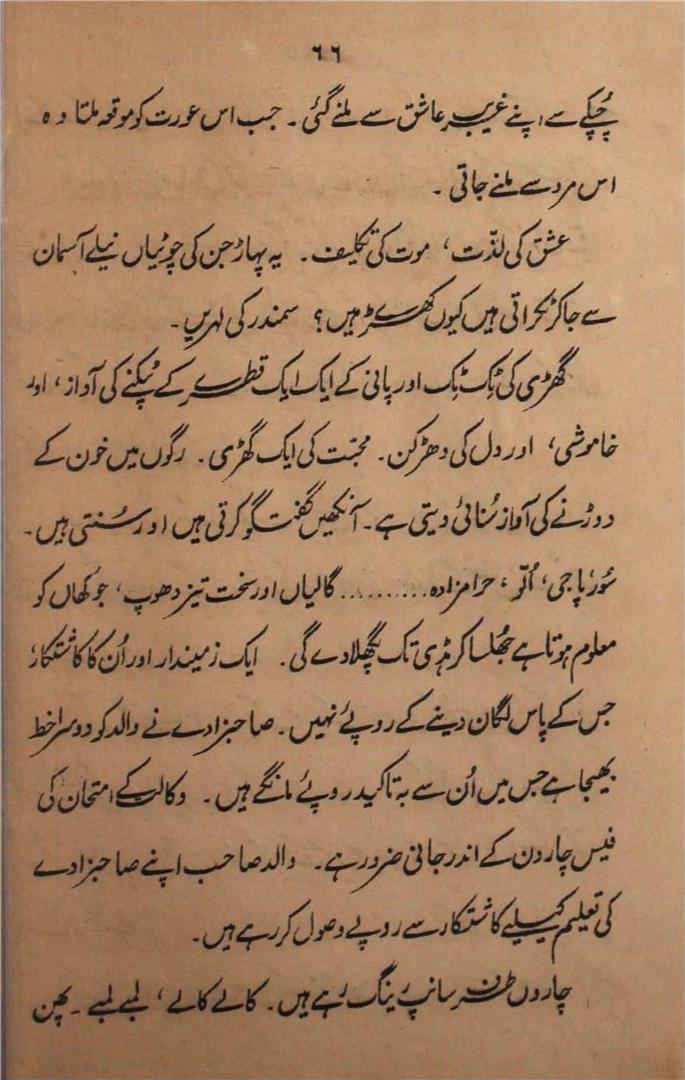 ۶۶
چُپکے سے اپنے غریب عاشق سے ملنے گئی ۔ جب اس عورت کو موقعہ ملتا وہ
اس مرد سے ملنے جاتی ۔
عشق کی لذّت ، موت کی تکلیف ۔ یہ پہاڑ جن کی چوٹیاں نیلے آسمان
سے جا کر ٹکراتی ہیں کیوں کھڑے ہیں ؟ سمندر کی لہریں ۔
گھڑی کی ٹِک ٹِک اور پانی کے ایک ایک قطرے کے ٹپکنے کی آواز ، اور
خاموشی ، اور دل کی دھڑکن ۔ محبّت کی ایک گھڑی ۔ رگوں میں خون کے
دوڑنے کی آواز سُنائی دیتی ہے ۔ آنکھیں گفتگو کرتی ہیں اور سُنتی ہیں ۔
سُور پاجی ، اُلّو ، حرامزادہ .......... گالیاں اور سخت تیز دھوپ ، جو کھال کو
معلوم ہوتا ہے جُھلسا کر ہڈی تک پگھلا دے گی ۔ ایک زمیندار اور اُن کا کاشتکار ،
جس کے پاس لگان دینے کے روپئے نہیں ۔ صاحبزادے نے والد کو دوسرا خط
بھیجا ہے جس میں اُن سے بہ تاکید روپئے مانگے ہیں ۔ وکالت کے امتحان کی
فیس چار دن کے اندر جانی ضرور ہے ۔ والد صاحب اپنے صاحبزادے
کی تعلیم کیلئے کاشتکار سے روپے وصول کر رہے ہیں ۔
چاروں طرف سانپ رینگ رہے ہیں ۔ کالے کالے ، لمبے لمبے ۔ پھن